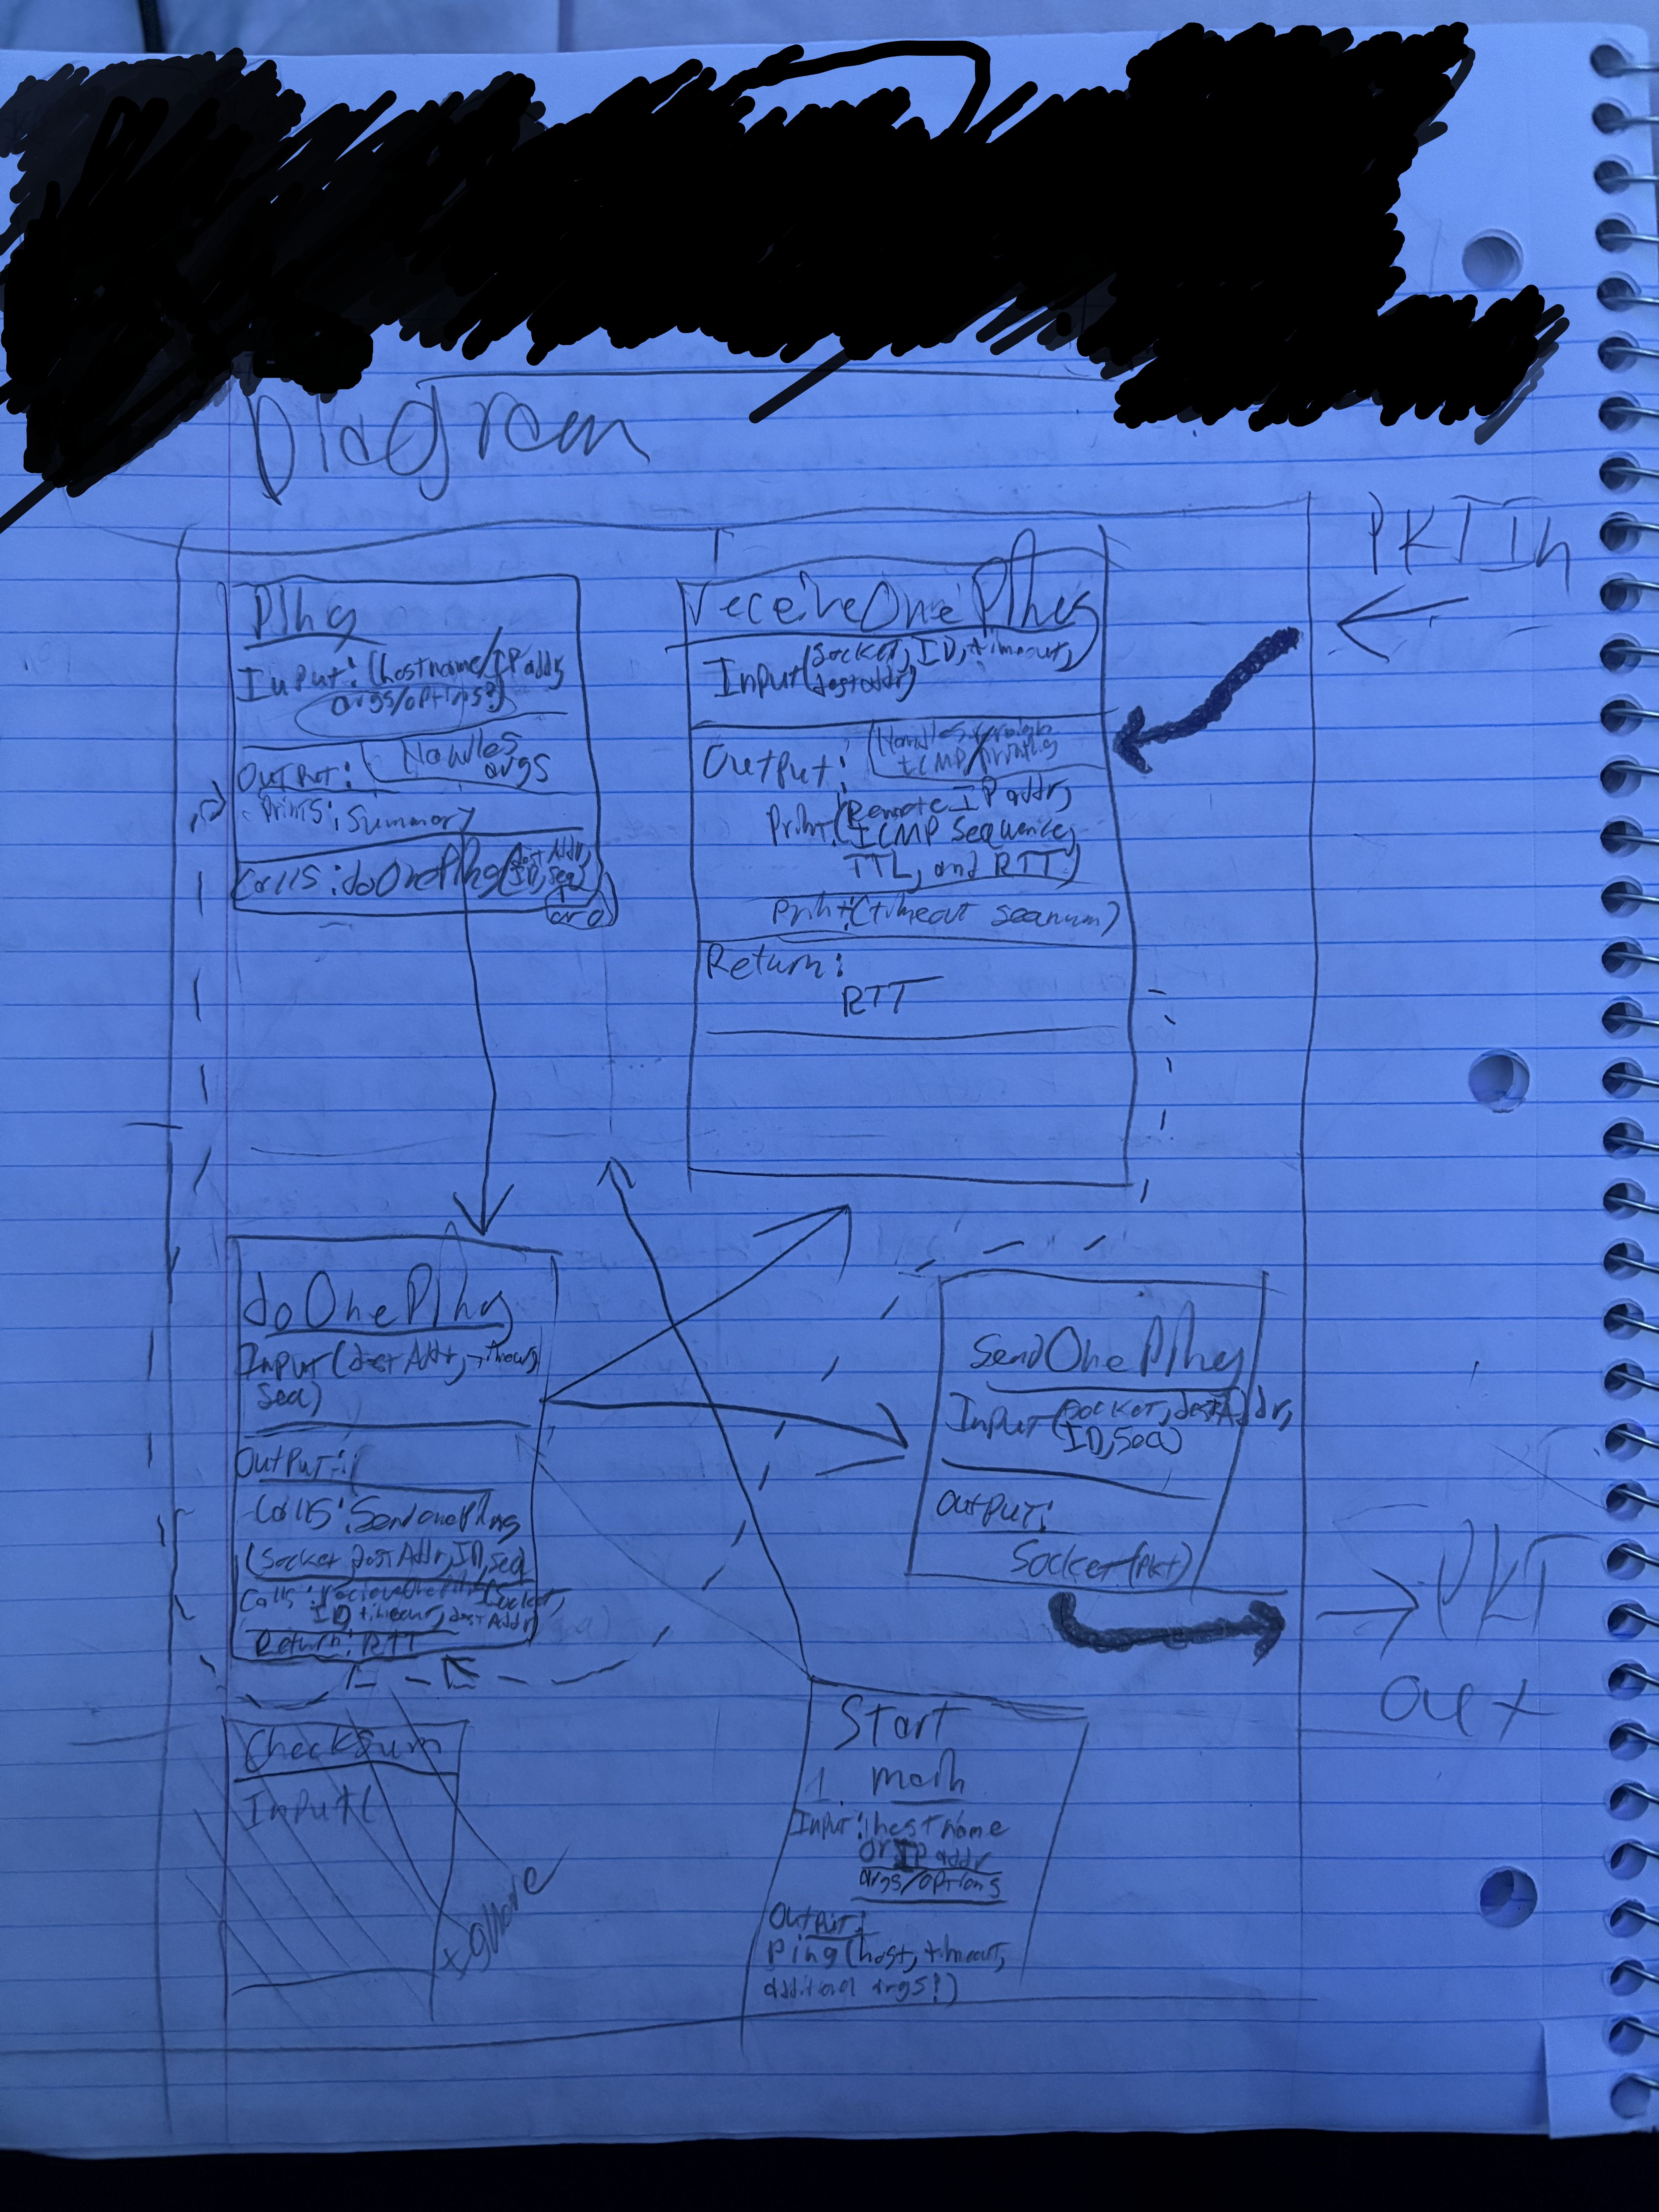 Diagram
PKT In
Ping
Input: (hostname/IP addr,
args/options?)
Output: Handles
args
- Prints: Summary
Calls: doOnePing(dest Addr,
ID, seq)
receiveOnePing
Input(socket, ID, timeout,
destaddr)
Output: Handles
ICMP/
Print(Remote IP addr,
ICMP Sequence,
TTL, and RTT)
Print:(timeout seqnum)
Return:
RTT
doOnePing
Input(dest Addr, timeout,
seq)
Output:
-Calls: SendOnePing
(Socket, dest Addr, ID, seq
Calls: recieveOnePing(Socket,
ID, timeout, dest Addr)
Return: RTT
SendOnePing
Input(socket, destAddr,
ID, Seq)
Output:
Socket(pkt)
PKT
Out
Checksum
Input(
ignore
Start
1. main
Input: hostname
or IP addr
args/options
Output:
Ping(host, timeout,
additional args?)